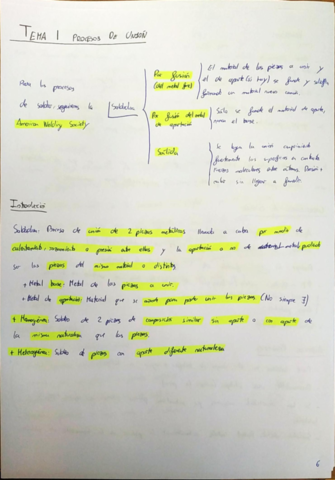 TEMA 1 PROCESOS DE UNIÓN
Para los procesos
de soldar seguiremos la
American Welding Society
Soldadura
Por fusión
(del metal base)
El material de las piezas a unir y
el de aporte (si hay) se funde y solidifica
formando un material nuevo común.
Por fusión del metal
de aportación
Sólo se funde el material de aporte,
nunca el base.
Sólida
Se logra la unión comprimiendo
fuertemente las superficies en contacto
Presión o
calor sin llegar a fundir.
Introducción
Soldadura: Proceso de unión de 2 piezas metálicas llevado a cabo por medio de
calentamiento, o presión entre ellas y la aportación o no de metal
ser las piezas del mismo material o distintos.
+ Metal base: Metal de las piezas a unir.
+ Metal de aportación: Material que se añade para poder unir las piezas (No siempre ∃)
+ Homogénea: Soldeo de 2 piezas de composición similar sin aporte o con aporte de
la misma naturaleza que las piezas.
+ Heterogénea: Soldeo de piezas con aporte diferente naturaleza
6